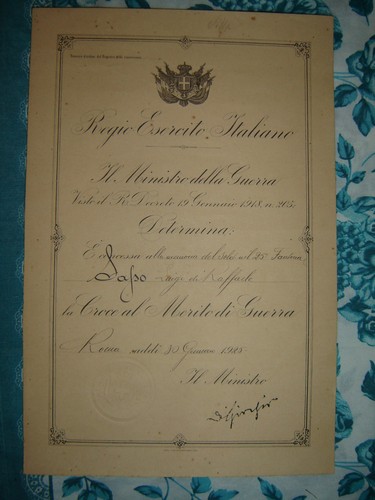 Regio Esercito Italiano
Il Ministro della Guerra
Visto il R. Decreto 19 Gennaio 1918, n. 205
Determina:
È concessa alla memoria del Sold. nel 25° Fanteria
di Raffaele
la Croce al Merito di Guerra
Roma, addì 30 1925
Il Ministro